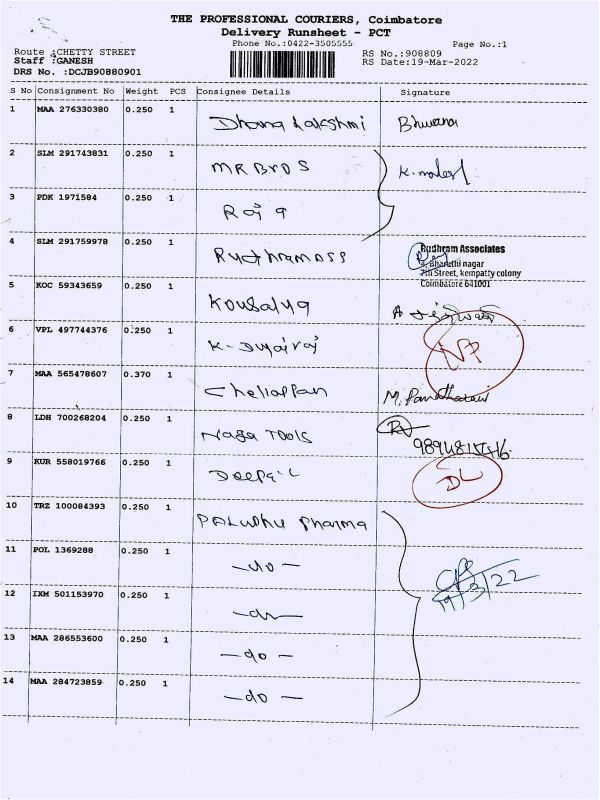 THE PROFESSIONAL COURIERS, Coimbatore
Delivery Runsheet - PCT
Phone No.:0422-3505555
Page No.:1
Route :CHETTY STREET
RS No.:908809
Staff :GANESH
RS Date:19-Mar-2022
DRS No. :DCJB90880901
S No Consignment No Weight PCS Consignee Details Signature
1 MAA 276330380 0.250 1 Dhana Lakshmi Bhuvana
2 SLM 291743831 0.250 1 MR Bros
3 PDK 1971584 0.250 1 Raja
4 SLM 291759978 0.250 1
Rudhram Associates
Bharathi nagar
7th Street, kempatty colony
Coimbatore 641001
5 KOC 59343659 0.250 1 Kousalya
6 VPL 497744376 0.250 1 K. Durairaj NP
7 MAA 565478607 0.370 1 Chellappan
8 LDH 700268204 0.250 1 Naga TOOLS
9 KUR 558019766 0.250 1 Deepa DL
10 TRZ 100084393 0.250 1 Pharma
11 POL 1369288 0.250 1 - do -
12 IXM 501153970 0.250 1 - do -
13 MAA 286553600 0.250 1 - do -
14 MAA 284723859 0.250 1 - do -
19/3/22